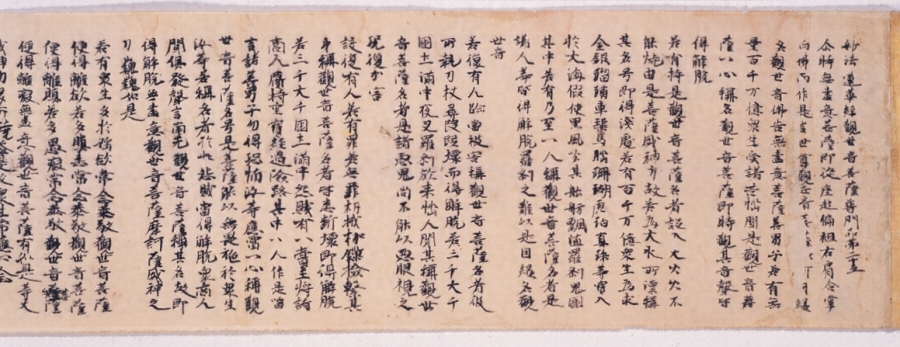 妙法蓮華經觀世音菩薩普門品第二十五
尒時無盡意菩薩即從座起偏袒右肩合掌
向佛而作是言世尊觀世音菩
名觀世音佛告無盡意菩薩善男子若有無
量百千万億衆生受諸苦惱聞是觀世音菩
薩一心稱名觀世音菩薩即時觀其音聲皆
得解脫
若有持是觀世音菩薩名者設入大火火不
能燒由是菩薩威神力故若為大水所漂稱
其名号即得淺處若有百千万億衆生為求
金銀瑠璃車璖馬瑙珊瑚虎珀真珠等寶入
於大海假使黒風吹其舩舫飄墮羅刹鬼國
其中若有乃至一人稱觀世音菩薩名者是
諸人等皆得解脫羅刹之難以是因緣名觀
世音
若復有人臨當被害稱觀世音菩薩名者彼
所執刀杖尋段段壞而得解脫若三千大千
國土滿中夜叉羅刹欲来惱人聞其稱觀世
音菩薩名者是諸惡鬼尚不能以惡眼視之
況復加害
設復有人若有罪若無罪杻械枷鎖檢繫其
身稱觀世音菩薩名者皆悉斷壞即得解脫
若三千大千國土滿中怨賊有一商主將諸
商人齎持重寶經過險路其中一人作是唱
言諸善男子勿得恐怖汝等應當一心稱觀
世音菩薩名号是菩薩能以無畏施於衆生
汝等若稱名者於此怨賊當得解脫衆商人
聞俱發聲言南无觀世音菩薩稱其名故即
得解脫無盡意觀世音菩薩摩訶薩威神之
力巍巍如是
若有衆生多於婬欲常念恭敬觀世音菩薩
便得離欲若多瞋恚常念恭敬觀世音菩薩
便得離瞋若多愚癡常念恭敬觀世音菩薩
便得離癡無盡意觀世音菩薩有如是等大